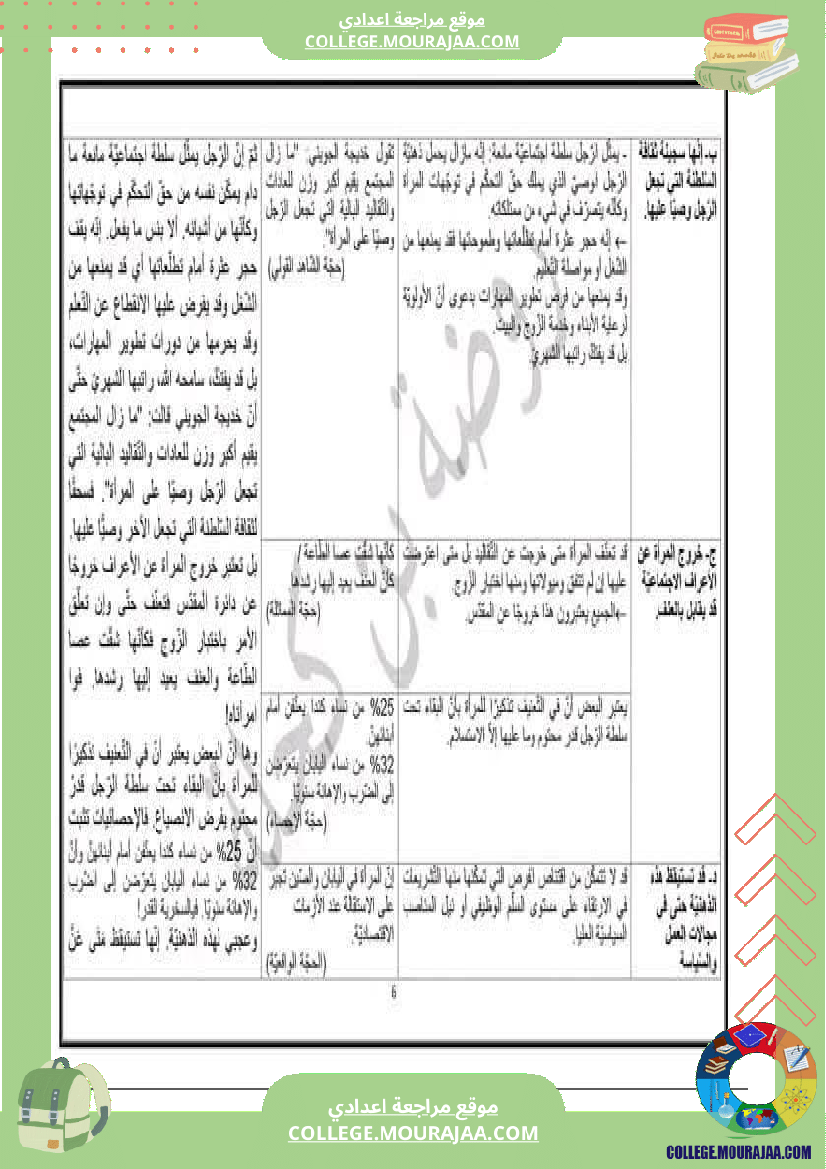 موقع مراجعة اعدادي
COLLEGE.MOURAJAA.COM
ب- إنّها سجينة ثقافة
السّلطنة التي تجعل
الرّجل وصيّا عليها.
- يمثّل الرّجل سلطة اجتماعيّة مانعة: إنّه مازال يحمل ذهنيّة
الرّجل الوصيّ الذي يملك حقّ التحكّم في توجّهات المرأة
وكأنّه يتصرّف في شيء من ممتلكاته.
-> إنّه حجر عثرة أمام تطلّعاتها وطموحتها فقد يمنعها من
الشّغل أو مواصلة التّعليم.
وقد يمنعها من فرص تطوير المهارات بدعوى أنّ الأولويّة
لرعاية الأبناء وخدمة الزّوج والبيت.
بل قد يفتكّ راتبها الشّهريّ.
تقول خديجة الجويني: "ما زال
المجتمع يقيم أكبر وزن للعادات
والتّقاليد البالية التي تجعل الرّجل
وصيّا على المرأة".
(حجّة الشّاهد القولي)
ثمّ إنّ الرّجل يمثّل سلطة اجتماعيّة مانعة ما
دام يمكّن نفسه من حقّ التحكّم في توجّهاتها
وكأنّها من أشيائه. ألا بئس ما يفعل. إنّه يقف
حجر عثرة أمام تطلّعاتها أي قد يمنعها من
الشّغل وقد يفرض عليها الانقطاع عن التّعلم
وقد يحرمها من دورات تطوير المهارات،
بل قد يفتكّ، سامحه الله، راتبها الشّهريّ حتّى
أنّ خديجة الجويني قالت: "ما زال المجتمع
يقيم أكبر وزن للعادات والتّقاليد البالية التي
تجعل الرّجل وصيّا على المرأة". فسحقًا
لثقافة السّلطنة التي تجعل الآخر وصيًّا عليها.
بل تعتبر خروج المرأة عن الأعراف خروجًا
عن دائرة المقدّس فتعنّف حتّى وإن تعلّق
الأمر باختيار الزّوج فكأنّها شقّت عصا
الطّاعة والعنف يعيد إليها رشدها. فوا
امرأتاه!
وها أنّ البعض يعتبر أنّ في التّعنيف تذكيرًا
للمرأة بأنّ البقاء تحت سلطة الرّجل قدرٌ
محتوم يفرض الانصياع. فالإحصائيات تثبت
أنّ 25% من نساء كندا يعنّفن أمام أبنائهنّ وأنّ
32% من نساء اليابان يتعرّضن إلى الضّرب
والإهانة سنويًا. فيالسخرية القدر!
وعجبي لهذه الذّهنيّة. إنّها تستيقظ متى عنّ
ج- خروج المرأة عن
الأعراف الاجتماعيّة
قد يقابل بالعنف.
قد تعنّف المرأة متى خرجت عن التّقاليد بل متى اعترضت
عليها إن لم تتفق وميولاتها ومنها اختيار الزّوج.
->الجميع يعتبرون هذا خروجًا عن المقدّس.
كأنّها شقّت عصا الطّاعة /
كأنّ العنف يعيد إليها رشدها
(حجّة المماثلة)
يعتبر البعض أنّ في التّعنيف تذكيرًا للمرأة بأنّ البقاء تحت
سلطة الرّجل قدر محتوم وما عليها إلاّ الاستسلام.
25% من نساء كندا يعنّفن أمام
أبنائهنّ.
32% من نساء اليابان يتعرّضن
إلى الضّرب والإهانة سنويًا.
(حجّة الإحصاء)
د- قد تستيقظ هذه
الذّهنيّة حتى في
مجالات العمل
والسّياسة
قد لا تتمكّن من اقتناص الفرص التي تمكّنها منها التّشريعات
في الارتقاء على مستوى السلّم الوظيفي أو نيل المناصب
السياسيّة العليا.
إنّ المرأة في اليابان والصّين تجبر
على الاستقالة عند الأزمات
الاقتصاديّة.
(الحجّة الواقعيّة)
6
موقع مراجعة اعدادي
COLLEGE.MOURAJAA.COM
COLLEGE.MOURAJAA.COM